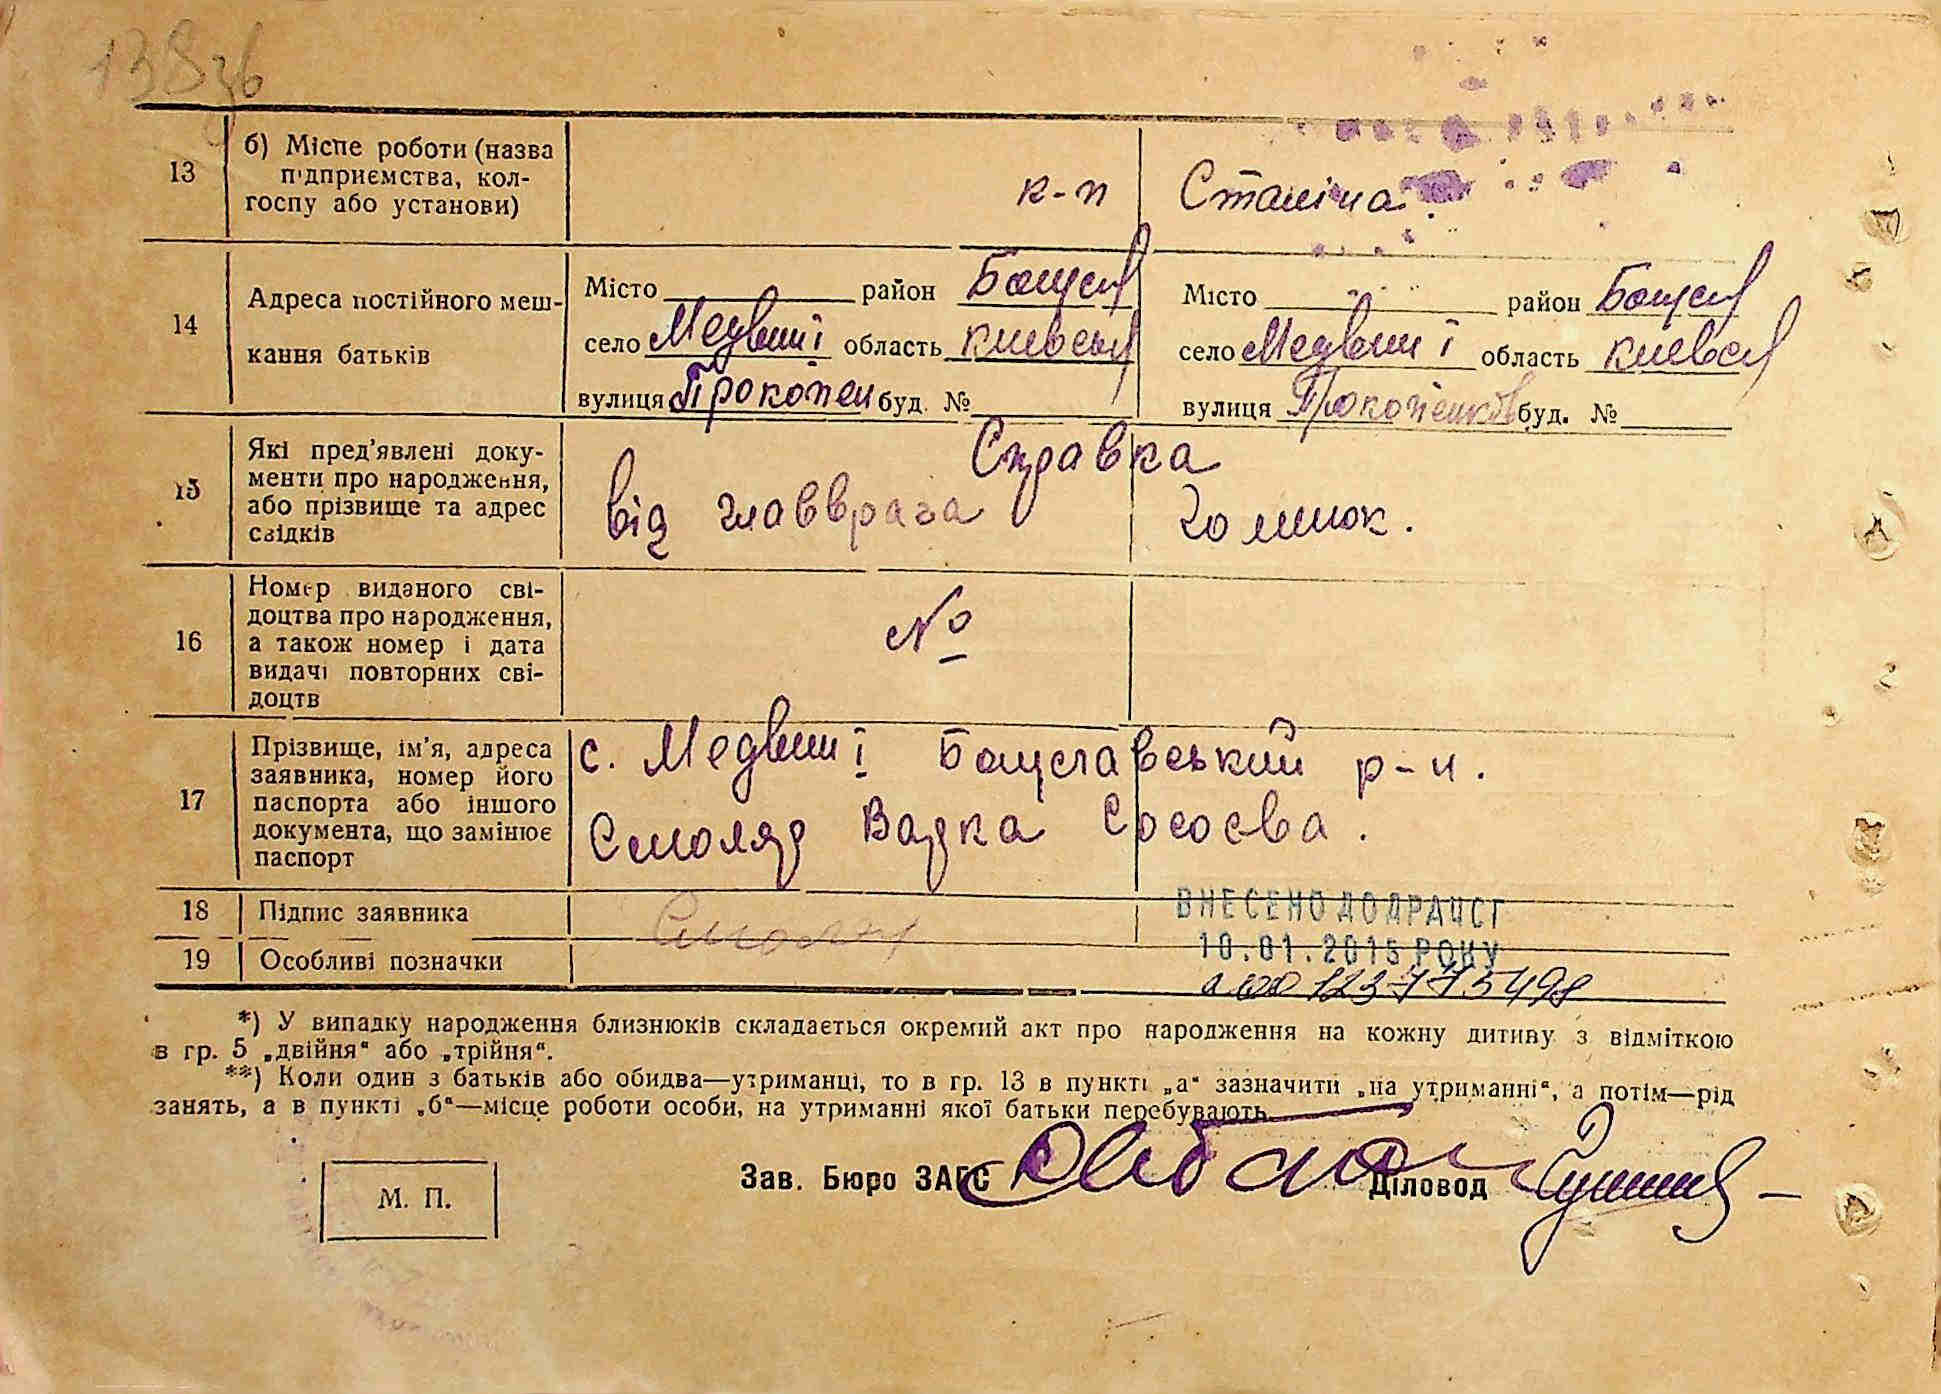 13
б) Місце роботи (назва
підприємства, кол-
госпу або установи)
к-п Сталіна.
14
Адреса постійного меш-
кання батьків
Місто район Богусл
село Медвин і область киевськ
вулиця Прокопен буд. №
Місто район Богусл
село Медвин і область киевськ
вулиця Прокопенків буд. №
15
Які пред'явлені доку-
менти про народження,
або прізвище та адрес
свідків
Справка
від главврача
16
Номер виданого сві-
доцтва про народження,
а також номер і дата
видачі повторних сві-
доцтв
№
17
Прізвище, ім'я, адреса
заявника, номер його
паспорта або іншого
документа, що замінює
паспорт
с. Медвин і Богуславський р-н.
Смоляр
18
Підпис заявника
Смоляр
19
Особливі позначки
ВНЕСЕНО ДО ДРАЦСГ
10.01.2015 РОКУ
00123775498
*) У випадку народження близнюків складається окремий акт про народження на кожну дитину з відміткою
в гр. 5 „двійня“ або „трійня“.
**) Коли один з батьків або обидва—утриманці, то в гр. 13 в пункті „а“ зазначити „на утриманні“, а потім—рід
занять, а в пункті „б“—місце роботи особи, на утриманні якої батьки перебувають
М. П.
Зав. Бюро ЗАГС
Діловод